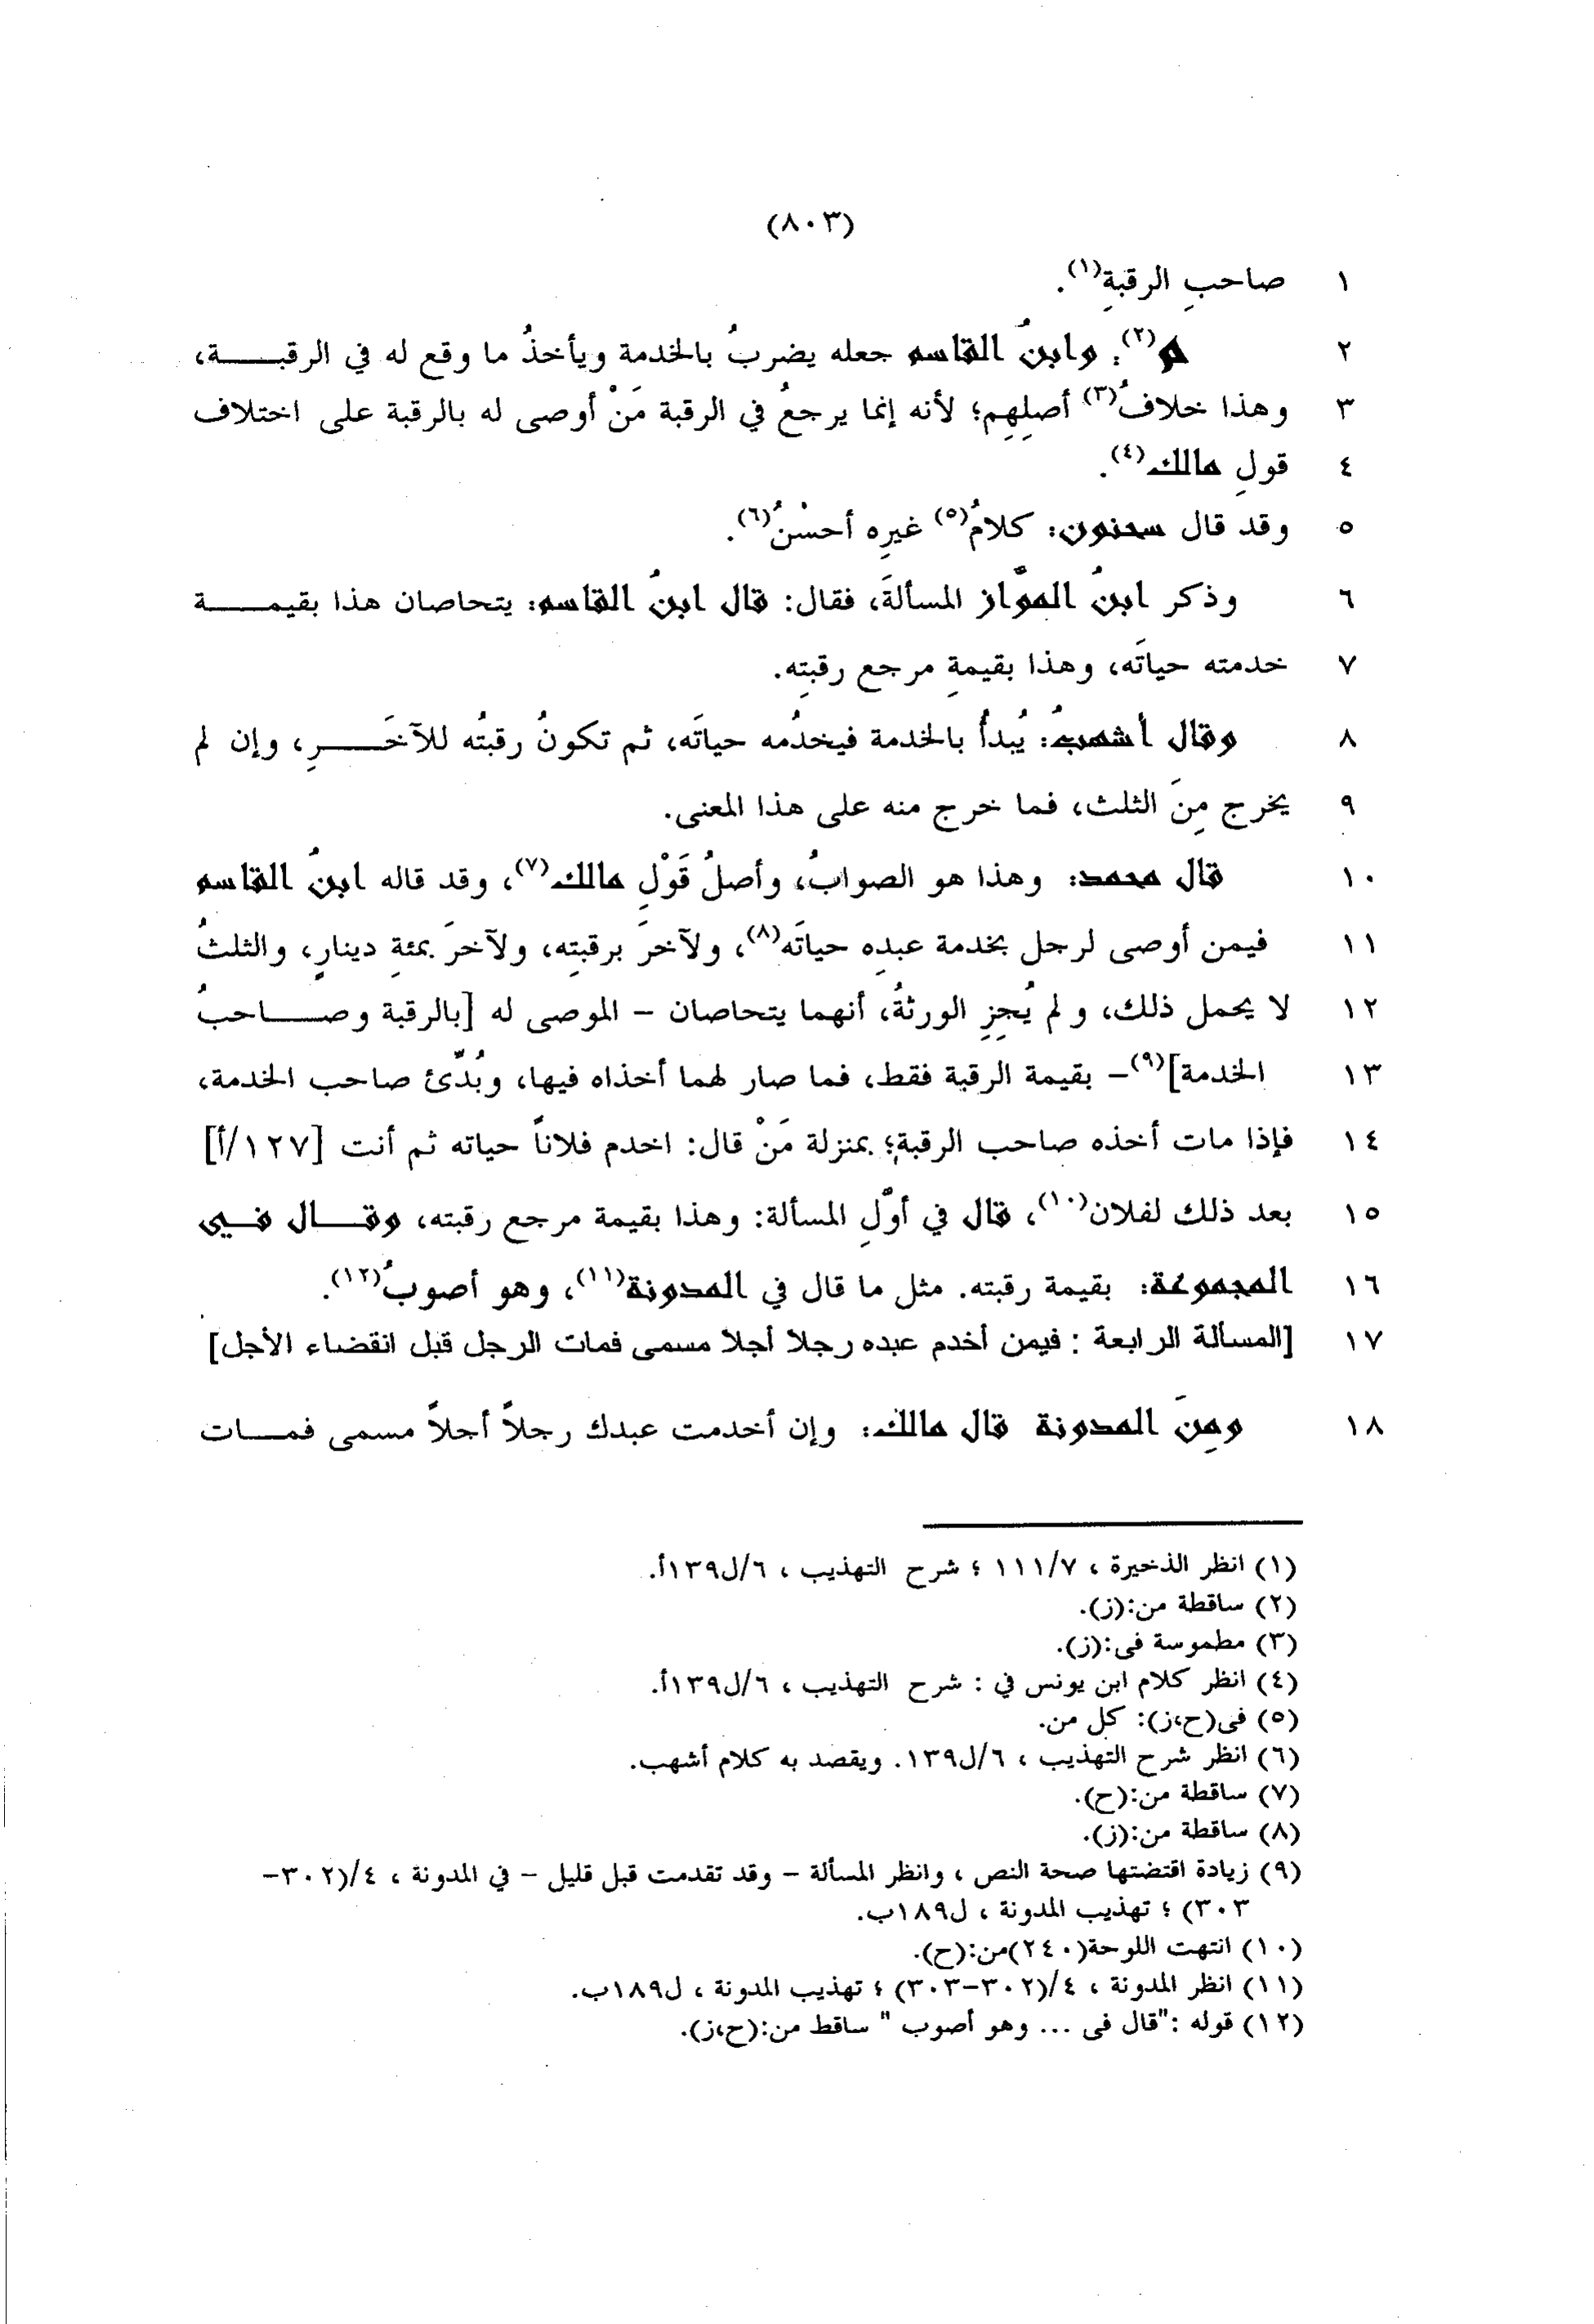 (٨٠٣)
١ صاحبِ الرقبةِ(١).
٢ م(٢): وابنُ القاسم جعله يضربُ بالخدمة ويأخذُ ما وقع له في الرقبـــــة،
٣ وهذا خلافُ(٣) أصلِهِم؛ لأنه إنما يرجعُ في الرقبة مَنْ أوصى له بالرقبة على اختلاف
٤ قولِ مالك(٤).
٥ وقد قال سحنون: كلامُ(٥) غيرِه أحسْنُ(٦).
٦ وذكر ابنُ الموّاز المسألةَ، فقال: قال ابنُ القاسم: يتحاصان هذا بقيمـــــة
٧ خدمته حياتَه، وهذا بقيمةِ مرجع رقبتِه.
٨ وقال أشهبُ: يُبدأُ بالخدمة فيخدُمه حياتَه، ثم تكونُ رقبتُه للآخَــــرِ، وإن لم
٩ يخرج مِنَ الثلث، فما خرج منه على هذا المعنى.
١٠ قال محمد: وهذا هو الصوابُ، وأصلُ قَوْلِ مالك(٧)، وقد قاله ابنُ القاسم
١١ فيمن أوصى لرجل بخدمة عبدِه حياتَه(٨)، ولآخرَ برقبتِه، ولآخرَ بمئةِ دينارٍ، والثلثُ
١٢ لا يحمل ذلك، ولم يُجِزِ الورثةُ، أنهما يتحاصان – الموصى له [بالرقبة وصـــــاحبُ
١٣ الخدمة](٩)– بقيمة الرقبة فقط، فما صار لهما أخذاه فيها، وبُدّئ صاحب الخدمة،
١٤ فإذا مات أخذه صاحب الرقبة؛ بمنزلة مَنْ قال: اخدم فلاناً حياته ثم أنت [١٢٧/أ]
١٥ بعد ذلك لفلان(١٠)، قال في أوّلِ المسألة: وهذا بقيمة مرجع رقبته، وقـــال فـــي
١٦ المجموعة: بقيمة رقبته. مثل ما قال في المدونة(١١)، وهو أصوبُ(١٢).
١٧ [المسألة الرابعة : فيمن أخدم عبده رجلا أجلا مسمى فمات الرجل قبل انقضاء الأجل]
١٨ ومِنَ المدونة قال مالك: وإن أخدمت عبدك رجلاً أجلاً مسمى فمـــات
(١) انظر الذخيرة ، ١١١/٧ ؛ شرح التهذيب ، ٦/ل١٣٩أ.
(٢) ساقطة من:(ز).
(٣) مطموسة في:(ز).
(٤) انظر كلام ابن يونس في : شرح التهذيب ، ٦/ل١٣٩أ.
(٥) في(ح،ز): كل من.
(٦) انظر شرح التهذيب ، ٦/ل١٣٩. ويقصد به كلام أشهب.
(٧) ساقطة من:(ح).
(٨) ساقطة من:(ز).
(٩) زيادة اقتضتها صحة النص ، وانظر المسألة – وقد تقدمت قبل قليل – في المدونة ، ٤/(٣٠٢–
٣٠٣) ؛ تهذيب المدونة ، ل١٨٩ب.
(١٠) انتهت اللوحة(٢٤٠)من:(ح).
(١١) انظر المدونة ، ٤/(٣٠٢–٣٠٣) ؛ تهذيب المدونة ، ل١٨٩ب.
(١٢) قوله :"قال في ... وهو أصوب " ساقط من:(ح،ز).